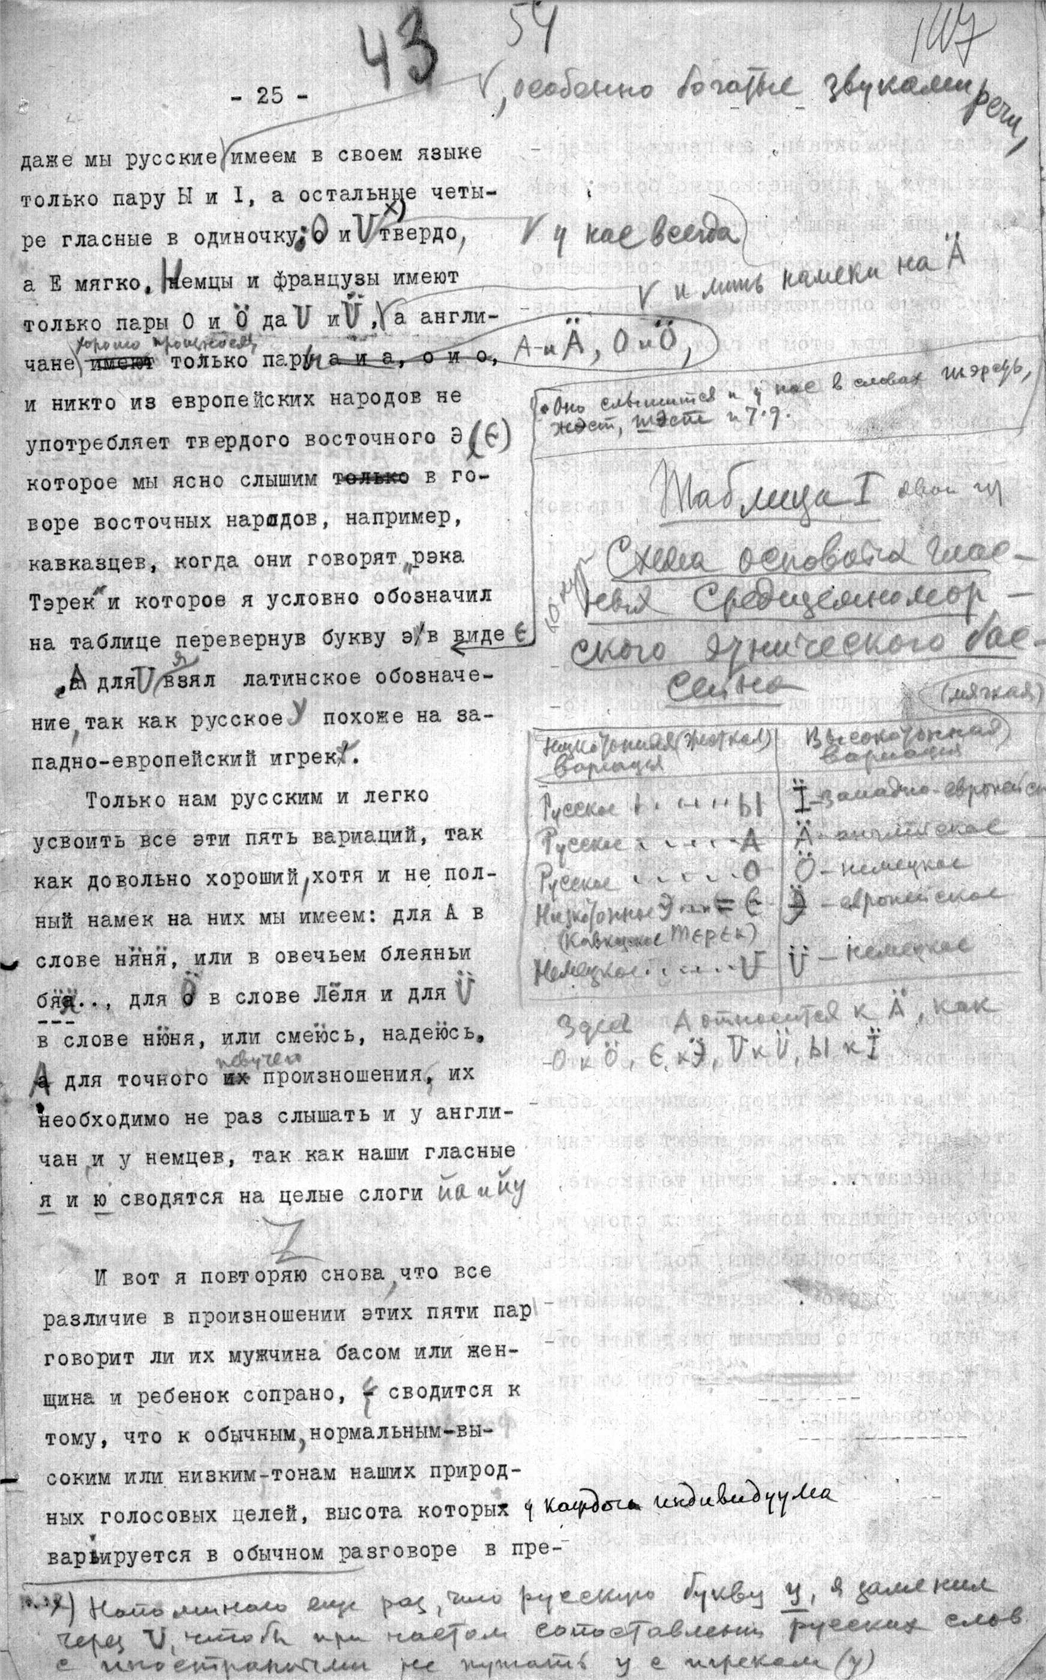 43
54
107
- 25 -
, особенно богатые звуками речи,
даже мы русские имеем в своем языке
только пару Ы и I, а остальные четы-
ре гласные в одиночку: О и U х) твердо,
у нас всегда
а Е мягко. Немцы и французы имеют
и лишь намеки на Ä
только пары О и Ö да U и Ü, а англи-
хорошо произносят
чане имеют только пару а и а, о и о,
А и Ä, О и Ö,
и никто из европейских народов не
Оно слышится и у нас в словах шэрсть,
жэст, шэст и т.д.
употребляет твердого восточного Э (Є)
которое мы ясно слышим только в го-
воре восточных народов, например,
кавказцев, когда они говорят „рэка
Тэрек" и которое я условно обозначил
на таблице перевернув букву э в виде Є
А для U я взял латинское обозначе-
ние, так как русское У похоже на за-
падно-европейский игрек.
Таблица I
Схема основных глас-
ных Средиземномор-
ского этнического бас-
сейна
Низкотонная (жесткая)
вариация
Высокотонная (мягкая)
вариация
Русское ..... Ы Ï - западно-европейск
Русское ..... А Ä - английское
Русское ..... О Ö - немецкое
Низкотонное Э ... = Є Ӭ - европейское
(Кавказское Тєрєк)
Немецкое ..... U Ü - немецкое
Здесь А относится к Ä, как
О к Ö, Є к Ӭ, U к Ü, Ы к Ï
Только нам русским и легко
усвоить все эти пять вариаций, так
как довольно хороший, хотя и не пол-
ный намек на них мы имеем: для А в
слове няня, или в овечьем блеяньи
бя..., для Ö в слове Лёля и для Ü
в слове нюня, или смеюсь, надеюсь.
А для точного их певучего произношения, их
необходимо не раз слышать и у англи-
чан и у немцев, так как наши гласные
я и ю сводятся на целые слоги йа и йу
И вот я повторяю снова, что все
различие в произношении этих пяти пар
говорит ли их мужчина басом или жен-
щина и ребенок сопрано, - сводится к
тому, что к обычным, нормальным-вы-
соким или низким-тонам наших природ-
ных голосовых целей, высота которых у каждого индивидуума
варьируется в обычном разговоре в пре-
х) Напоминаю еще раз, что русскую букву у, я заменил
через U, чтобы при частом сопоставлении русских слов
с иностранными не путать у с игреком (y)